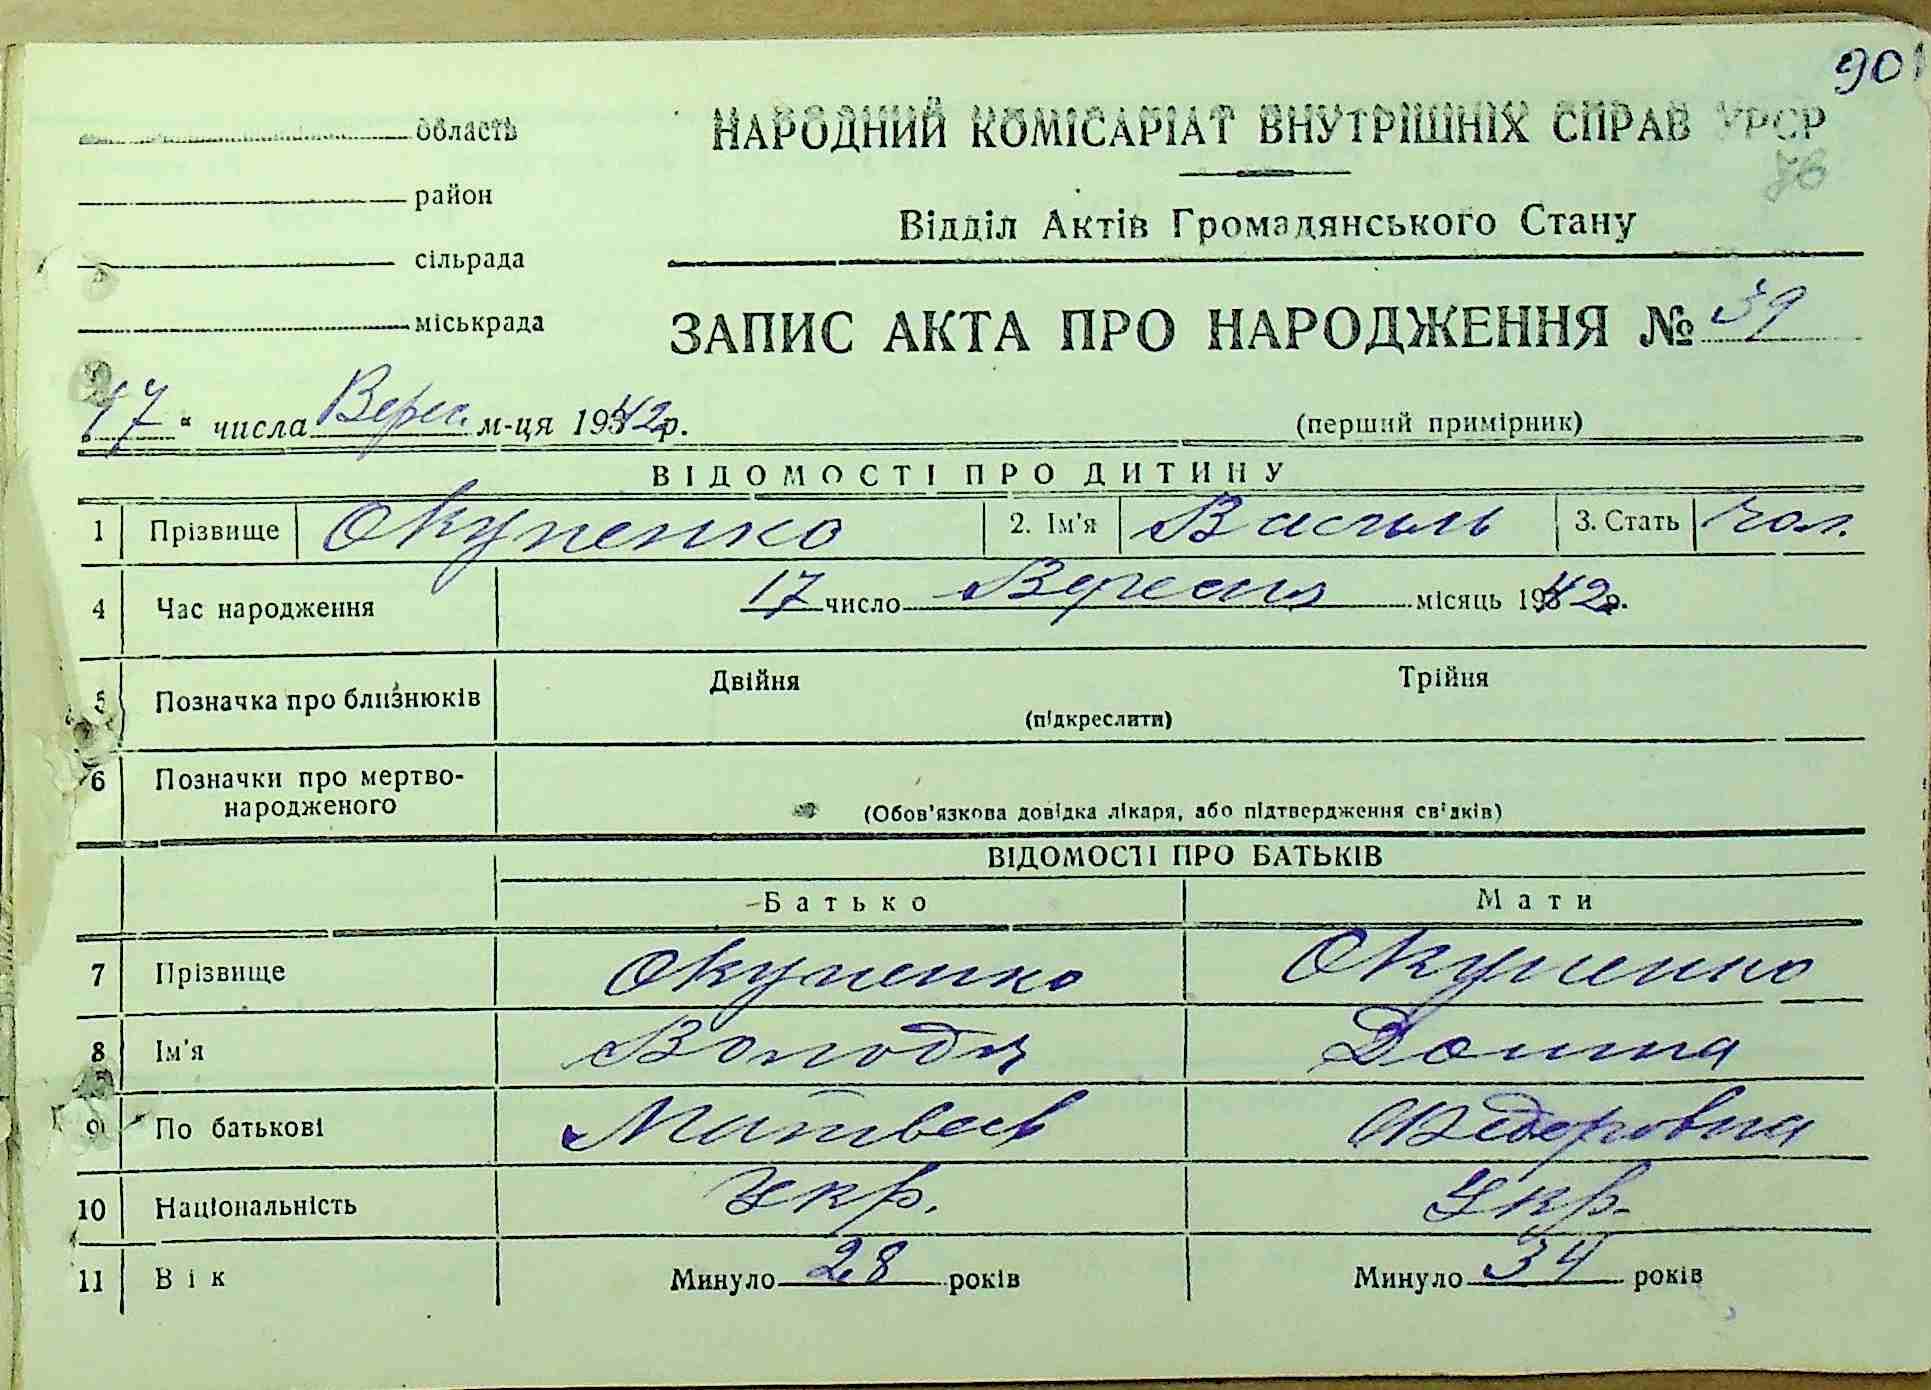 90
область
район
сільрада
міськрада
НАРОДНИЙ КОМІСАРІАТ ВНУТРІШНІХ СПРАВ УРСР
78
Відділ Актів Громадянського Стану
ЗАПИС АКТА ПРО НАРОДЖЕННЯ № 39
„17" числа Верес. м-ця 1942р.
(перший примірник)
ВІДОМОСТІ ПРО ДИТИНУ
1 Прізвище Окупенко 2. Ім'я Василь 3. Стать чол.
4 Час народження 17 число Вересня місяць 1942р.
5 Позначка про близнюків Двійня Трійня
(підкреслити)
6 Позначки про мертво-
народженого (Обов'язкова довідка лікаря, або підтвердження свідків)
ВІДОМОСТІ ПРО БАТЬКІВ
Батько Мати
7 Прізвище Окупенко Окупенко
8 Ім'я Володя Домна
9 По батькові Матвеев Федоровна
10 Національність Укр. Укр.
11 Вік Минуло 28 років Минуло 34 років